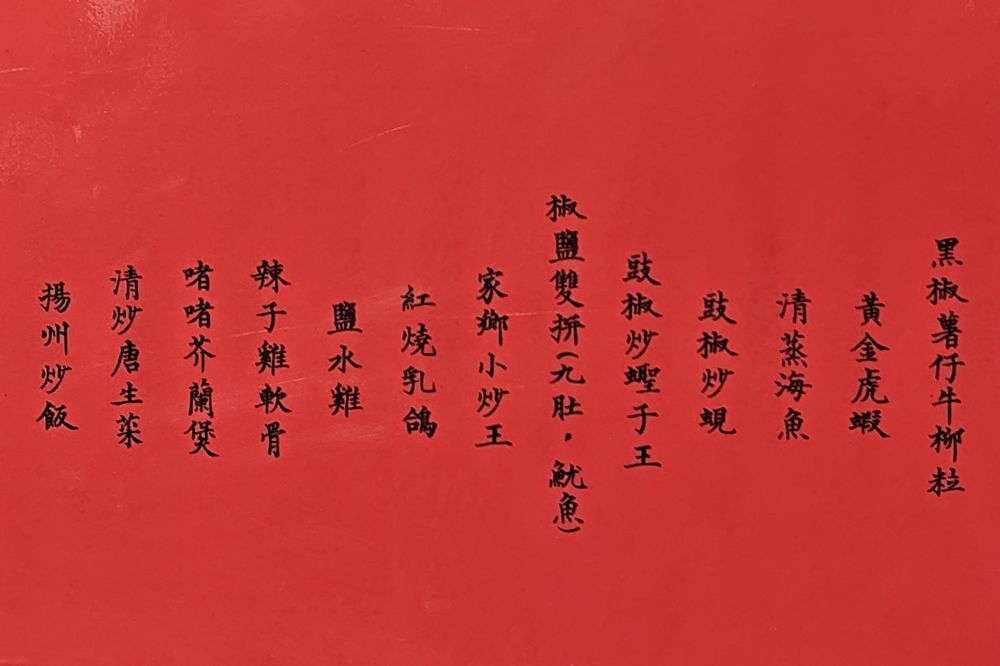 黑椒薯仔牛柳粒
黃金虎蝦
清蒸海魚
豉椒炒蜆
豉椒炒蟶子王
椒鹽雙拼(九肚，魷魚)
家鄉小炒王
紅燒乳鴿
鹽水雞
辣子雞軟骨
啫啫芥蘭煲
清炒唐生菜
揚州炒飯